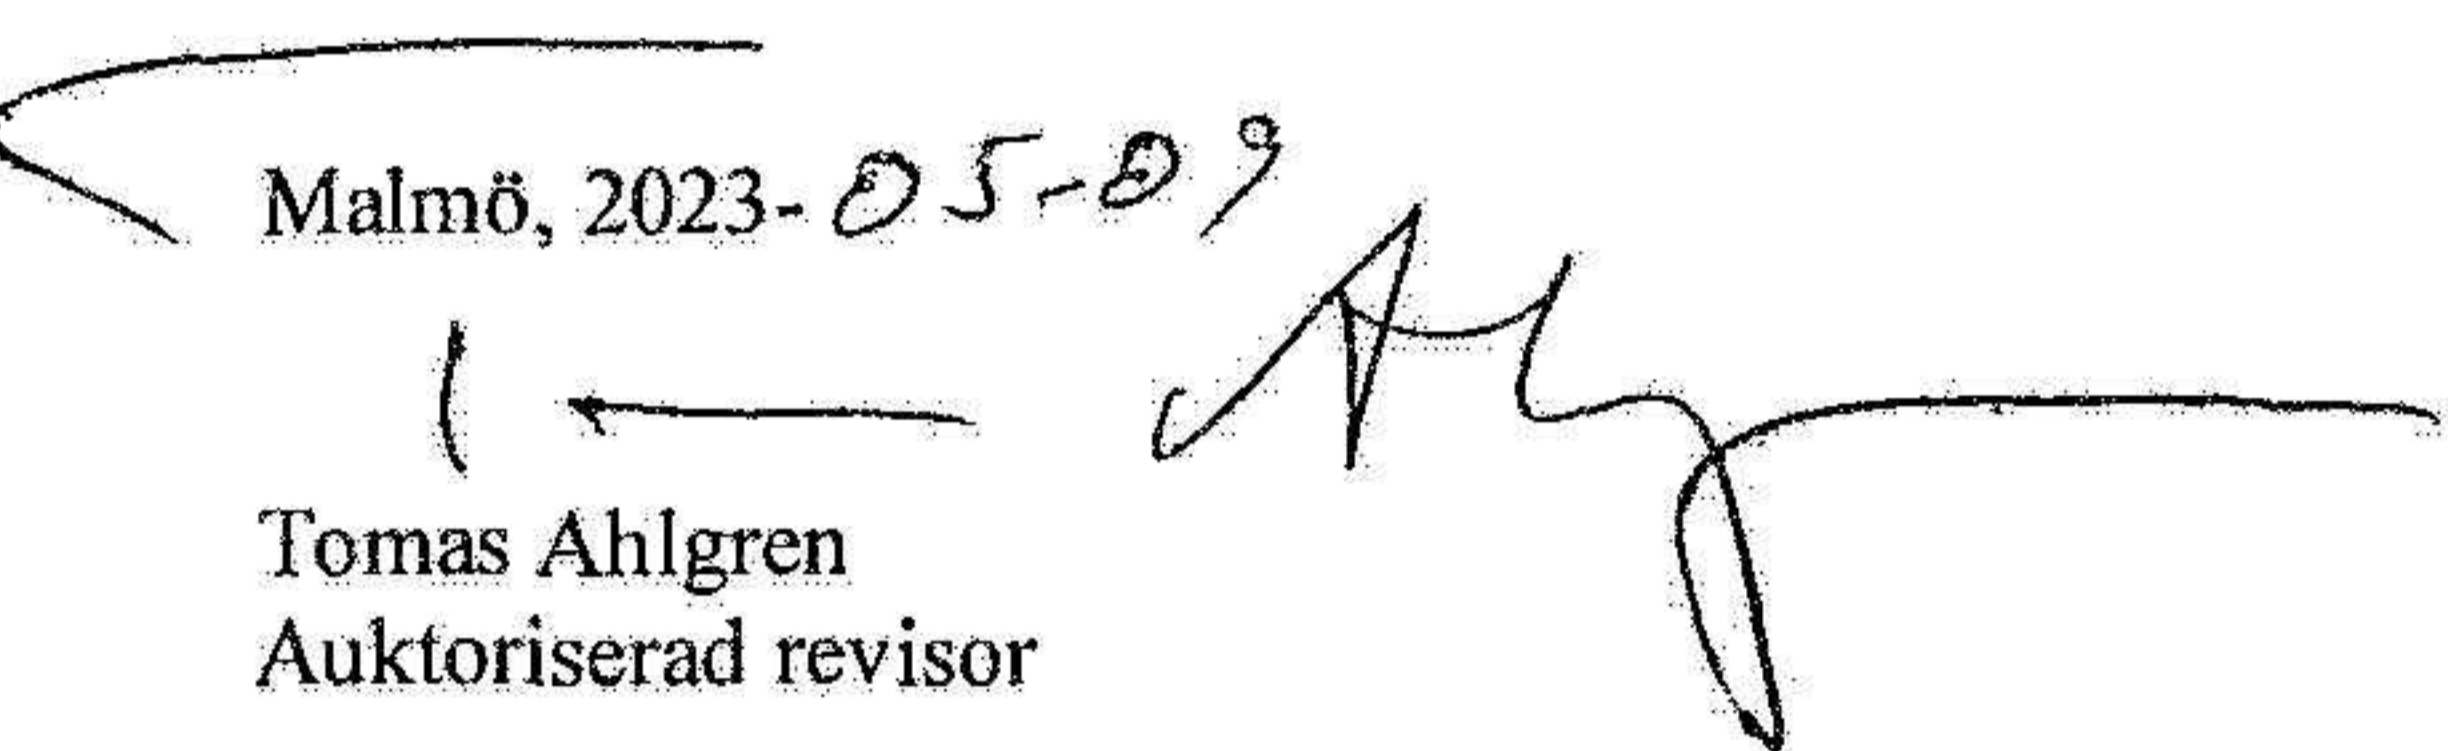 Malmö, 2023-05-09
Tomas Ahlgren
Auktoriserad revisor